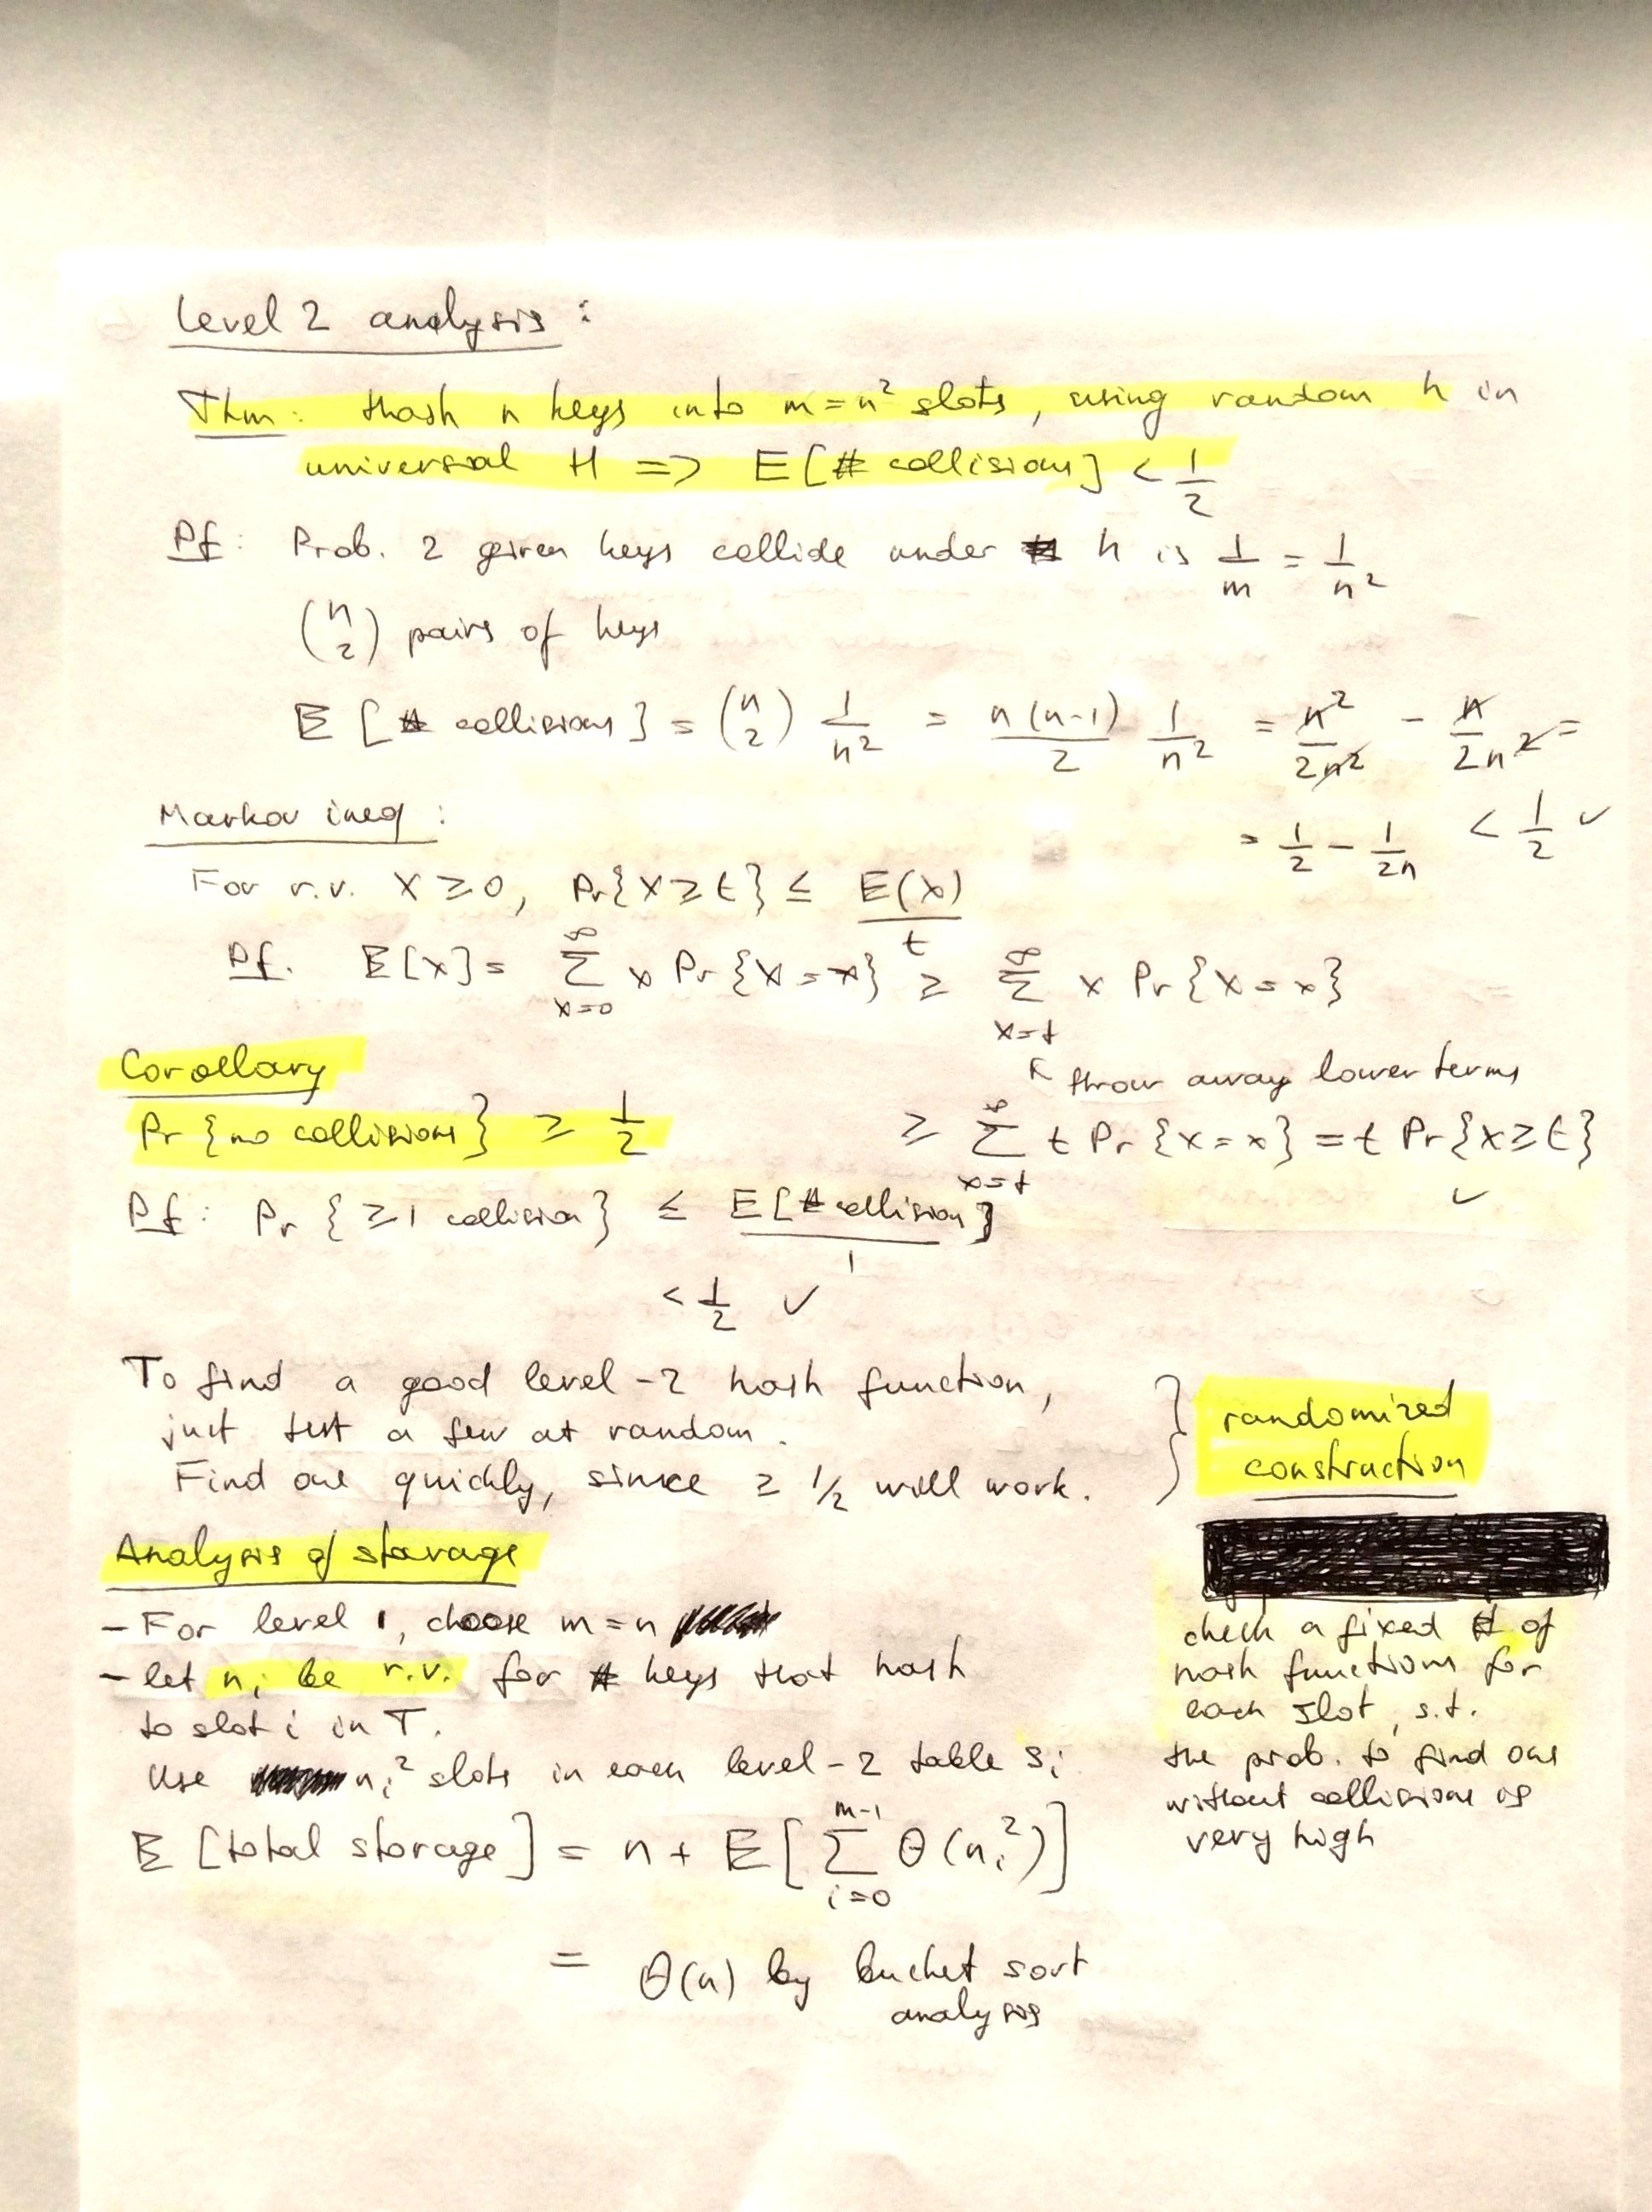 Level 2 analysis:
Thm: Hash n keys into m = n² slots, using random h in
universal H => E[# collisions] < 1/2
Pf: Prob. 2 given keys collide under h is 1/m = 1/n²
(n 2) pairs of keys
E[# collisions] = (n 2) 1/n² = n(n-1)/2 1/n² = n²/2n² - n/2n² =
= 1/2 - 1/2n < 1/2 ✓
Markov ineq:
For r.v. X ≥ 0, Pr{X ≥ t} ≤ E(x)/t
Pf. E[X] = ∑_{x=0}^{∞} x Pr{X = x} ≥ ∑_{x=t}^{∞} x Pr{X = x}
↖ throw away lower terms
≥ ∑_{x=t}^{∞} t Pr{X = x} = t Pr{X ≥ t}
✓
Corollary
Pr{no collisions} ≥ 1/2
Pf: Pr{≥1 collision} ≤ E[# collision]/1
< 1/2 ✓
To find a good level-2 hash function,
just test a few at random.
Find one quickly, since ≥ 1/2 will work.
} randomized
construction
check a fixed # of
hash functions for
each slot, s.t.
the prob. to find one
without collisions is
very high
Analysis of storage
- For level 1, choose m = n
- let nᵢ be r.v. for # keys that hash
to slot i in T.
Use nᵢ² slots in each level-2 table Sᵢ
E[total storage] = n + E[∑_{i=0}^{m-1} Θ(nᵢ²)]
= Θ(n) by bucket sort
analysis